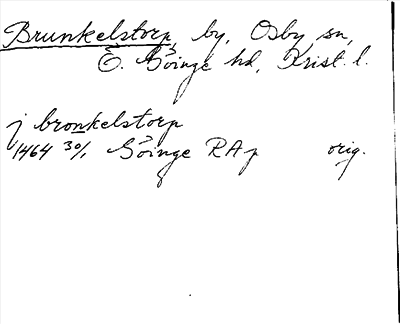 Brunkelstorp, by, Osby sn,
Ö. Göinge hd, Krist. l.
j bronkelstorp
1464 30/1 Göinge RAp orig.